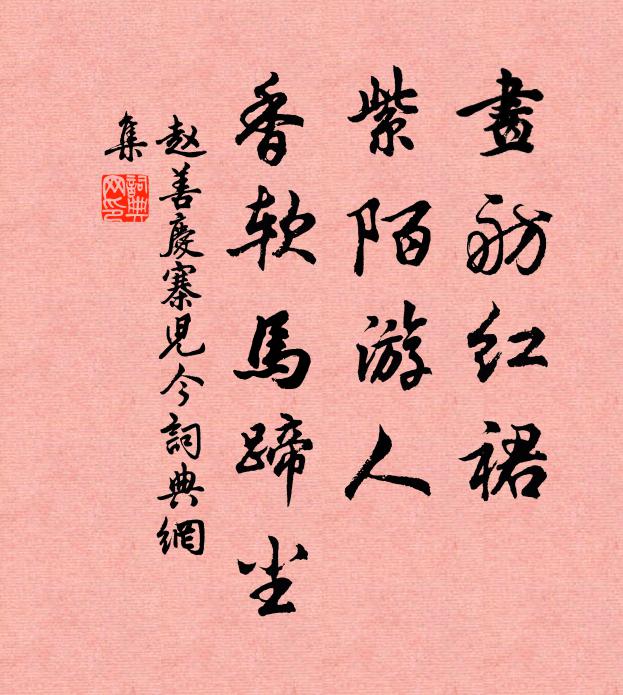 畫舫红裙
紫陌游人
香軟馬蹄尘
赵善慶寨児令詞典網
集
詞典网印